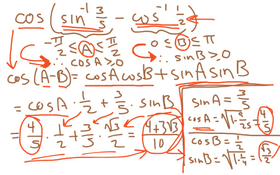 cos(sin⁻¹ 3/5 − cos⁻¹ 1/2)
−π/2 ≤ A ≤ π/2
0 ≤ B ≤ π
∴ cosA ≥ 0
∴ sinB ≥ 0
cos(A−B) = cosA cosB + sinA sinB
= cosA · 1/2 + 3/5 · sinB
= 4/5 · 1/2 + 3/5 · √3/2 = (4+3√3)/10
sinA = 3/5
cosA = √(1−9/25) = 4/5
cosB = 1/2
sinB = √(1−1/4) = √3/2